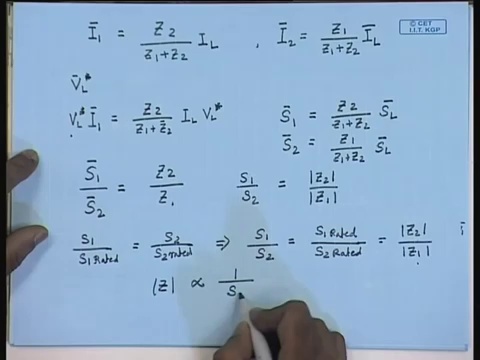 Ī₁ = Z₂/(Z₁+Z₂) I_L , Ī₂ = Z₁/(Z₁+Z₂) Ī_L
© CET
I.I.T. KGP
V̄_L*
V_L* Ī₁ = Z₂/(Z₁+Z₂) I_L V_L*
S̄₁ = Z₂/(Z₁+Z₂) S̄_L
S̄₂ = Z₁/(Z₁+Z₂) S̄_L
S̄₁/S̄₂ = Z₂/Z₁
S₁/S₂ = |Z₂|/|Z₁|
S₁/S₁Rated = S₂/S₂rated ⇒ S₁/S₂ = S₁Rated/S₂Rated = |Z₂|/|Z₁|
|Z| ∝ 1/S